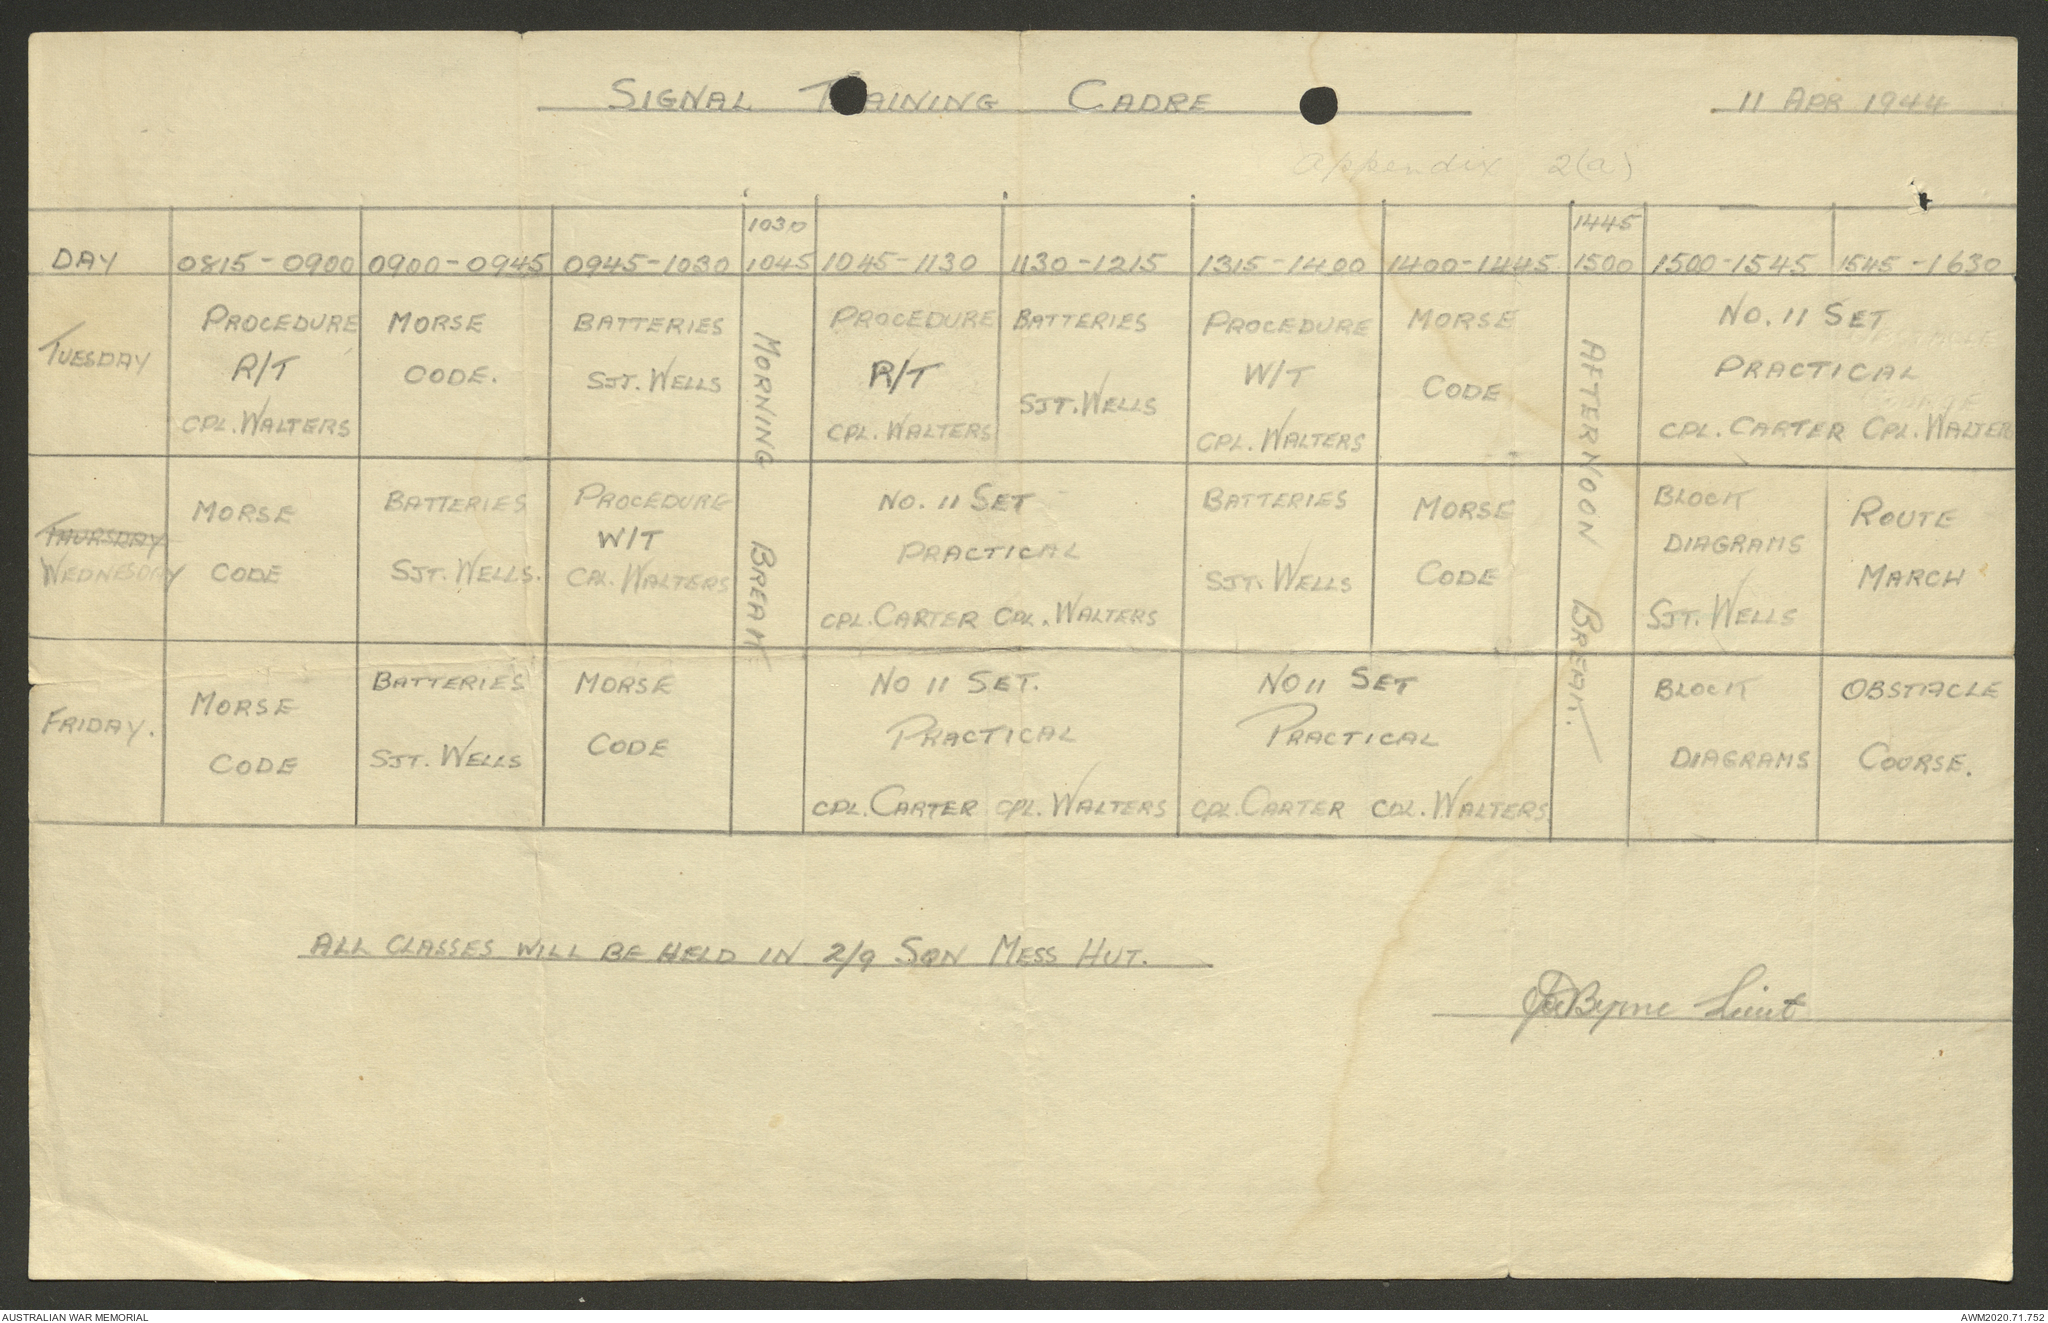 SIGNAL TRAINING CADRE
11 APR 1944
Appendix 2(a)
DAY 0815-0900 0900-0945 0945-1030 1030 1045 1045-1130 1130-1215 1315-1400 1400-1445 1445 1500 1500-1545 1545-1630
TUESDAY
PROCEDURE
R/T
CPL. WALTERS
MORSE
CODE.
BATTERIES
SJT. WELLS
MORNING BREAK
PROCEDURE
R/T
CPL. WALTERS
BATTERIES
SJT. WELLS
PROCEDURE
W/T
CPL. WALTERS
MORSE
CODE
AFTERNOON BREAK.
NO. 11 SET
PRACTICAL
CPL. CARTER CPL. WALTERS
THURSDAY
WEDNESDAY
MORSE
CODE
BATTERIES
SJT. WELLS.
PROCEDURE
W/T
CPL. WALTERS
NO. 11 SET
PRACTICAL
CPL. CARTER CPL. WALTERS
BATTERIES
SJT. WELLS
MORSE
CODE
BLOCK
DIAGRAMS
SJT. WELLS
ROUTE
MARCH
FRIDAY.
MORSE
CODE
BATTERIES
SJT. WELLS
MORSE
CODE
NO 11 SET.
PRACTICAL
CPL. CARTER CPL. WALTERS
NO 11 SET
PRACTICAL
CPL. CARTER CPL. WALTERS
BLOCK
DIAGRAMS
OBSTACLE
COURSE.
ALL CLASSES WILL BE HELD IN 2/9 SQN MESS HUT.
Byrne Lieut
AUSTRALIAN WAR MEMORIAL
AWM2020.71.752